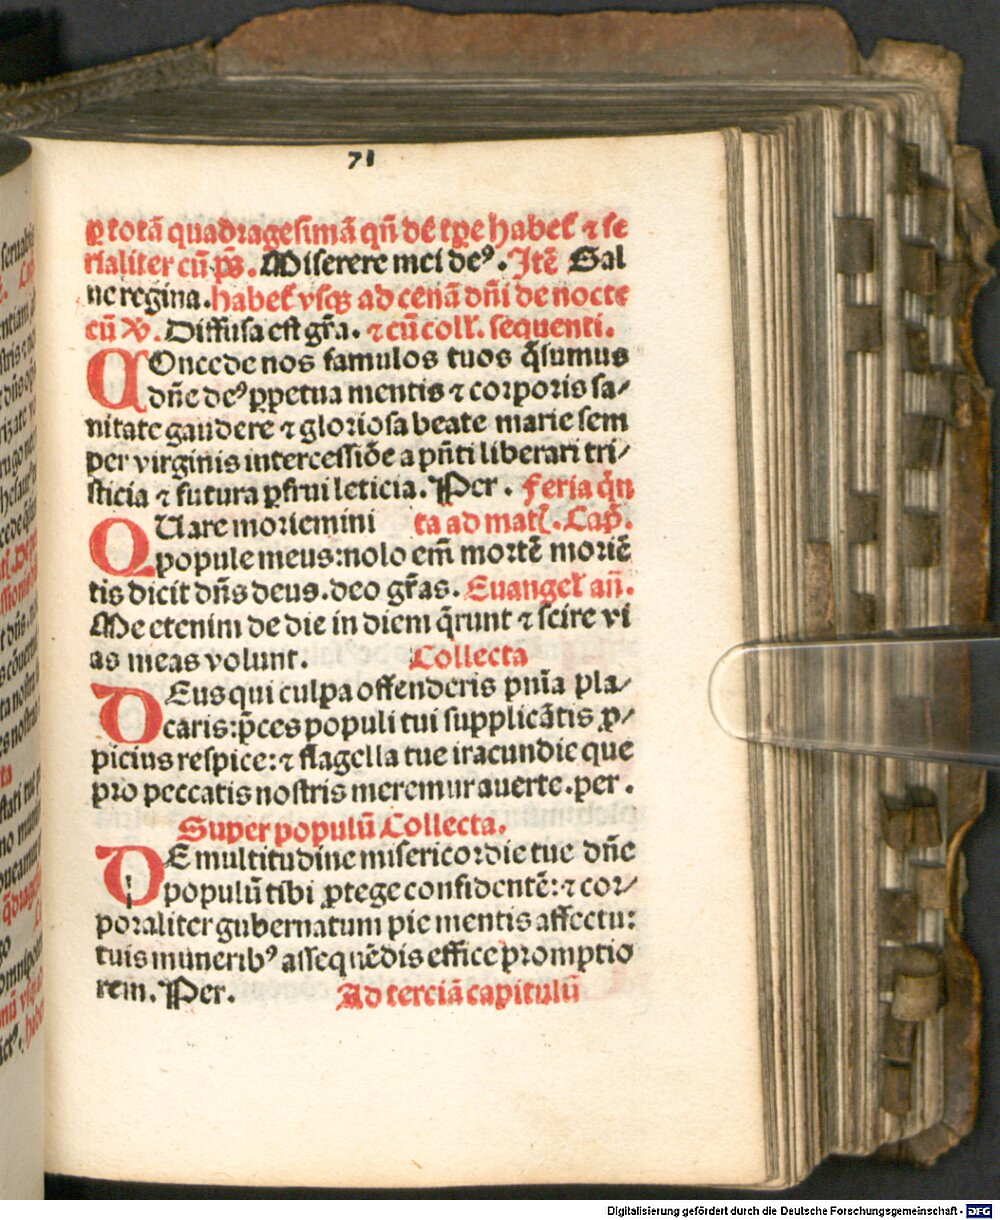 71
ꝑ totā quadragesimā qn̄ dē tꝑe habet̄ ⁊ fe
rialiter cū p̄s. Miserere mei de⁹. Itē Sal
ue regina. habet̄ vsq3 ad cenā dn̄i de nocte
cū V̄. Diffusa est gr̄a. ⁊ cū coll̄. sequenti.
COncede nos famulos tuos q̄sumus
dn̄e de⁹ ꝑpetua mentis ⁊ corporis sa⸗
nitate gaudere ⁊ gloriosa beate marie sem
per virginis intercessiōe a pn̄ti liberari tri⸗
sticia ⁊ futura ꝑfrui leticia. Per. Feria q̄n
QUare moriemini ta ad mat̄. Cap̄.
popule meus: nolo em̄ mortē moriē
tis dicit dn̄s deus. deo gr̄as. Euangel̄ an̄.
Me etenim de die in diem q̄runt ⁊ scire vi
as meas volunt. Collecta
DEus qui culpa offenderis pn̄ia pla⸗
caris: p̄ces populi tui supplicātis ꝓ⸗
picius respice: ⁊ flagella tue iracundie que
pro peccatis nostris meremur auerte. per.
Super populū Collecta.
DE multitudine misericordie tue dn̄e
populū tibi ꝓtege confidentē: ⁊ cor⸗
poraliter gubernatum pie mentis affectu:
tuis munerib⁹ assequēdis effice promptio
rem. Per. Ad terciā capitulū
Digitalisierung gefördert durch die Deutsche Forschungsgemeinschaft - DFG